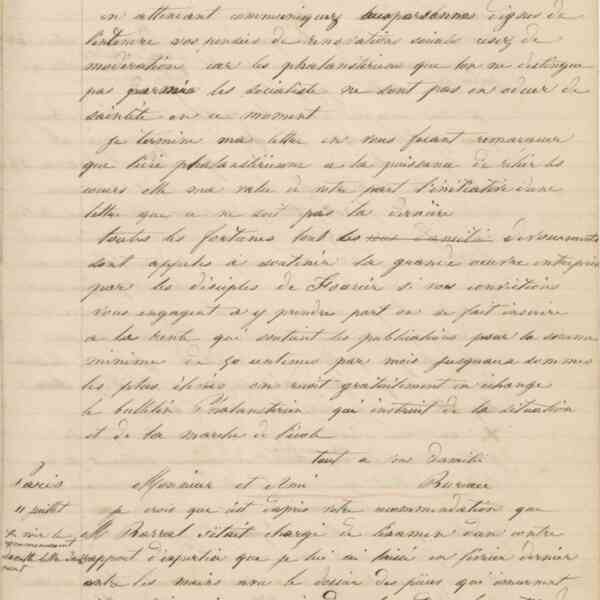 en attendant communiquez aux personnes dignes de
l'entendre vos pensées de renovations sociale usez de
modération car les phalansteriens que l'on ne distingue
pas parmis les socialiste ne sont pas en odeur de
sainteté en ce moment
Je termine ma lettre en vous faisant remarquer
que l'idée phalanstérienne a la puissance de relier les
cœurs elle ma valu de votre part l'initiative d'une
lettre que ce ne soit pas la derniere
toutes les fortunes tout les devouements
sont appeles a soutenir la grande oeuvre entreprise
par les disciples de Fourier si vos convictions
vous engagent a y prendre part on se fait inscrire
a la rente qui soutient les publications pour la somme
minime de 50 centimes par mois jusquaux sommes
les plus élévées on reçoit gratuitement en échange
le bulletin Phalanstérien qui instruit de la situation
et de la marche de l'école
tout a vous d'amitié
Paris Monsieur et Ami Bureau
11 juillet je crois que c'est d'apres votre recommandation que
M Barral s'était chargé de l'examen d'un contre
rapport d'expertise que je lui ai laissé en fevrier dernier
entre les mains avec le dossier des pièces qui